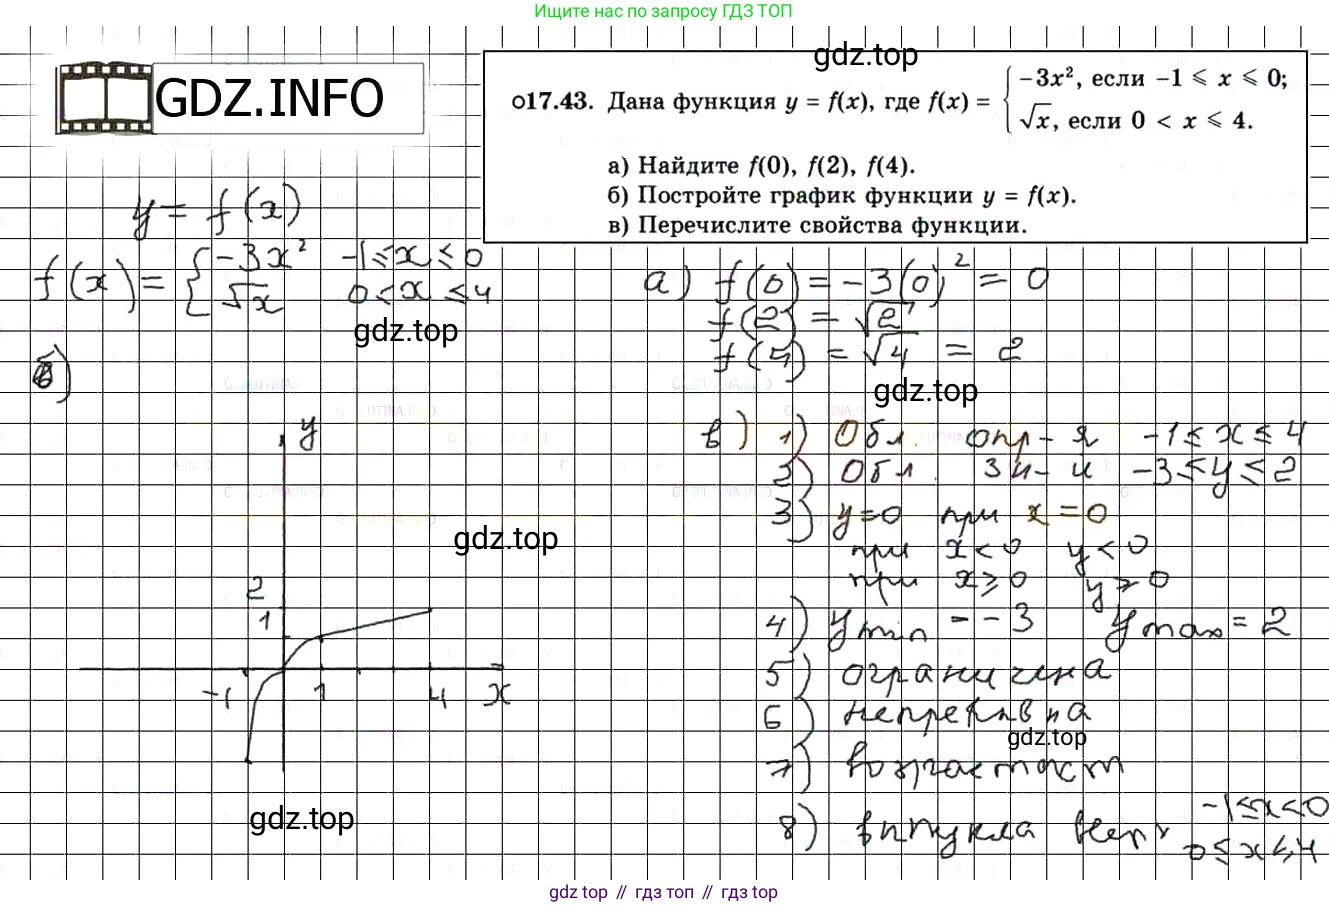 Ищите нас по запросу ГДЗ ТОП
gdz.top
GDZ.INFO
017.43. Дана функция y = f(x), где f(x) = { −3x², если −1 ⩽ x ⩽ 0;
√x, если 0 < x ⩽ 4.
а) Найдите f(0), f(2), f(4).
б) Постройте график функции y = f(x).
в) Перечислите свойства функции.
y = f(x)
f(x) = { -3x² -1≤x≤0
√x 0<x≤4
gdz.top
а) f(0) = -3(0)² = 0
f(2) = √2
f(4) = √4 = 2
gdz.top
б)
y
2
1
-1 1 4 x
gdz.top
gdz.top
в) 1) Обл. опр-я -1≤x≤4
2) Обл. зн-и -3≤y≤2
3) y=0 при x=0
при x<0 y<0
при x≥0 y≥0
4) y min = -3 y max = 2
5) ограничена
6) непрерывна
gdz.top
7) возрастает
8) выпукла верх -1≤x<0
0≤x≤4
gdz top // гдз топ // gdz top